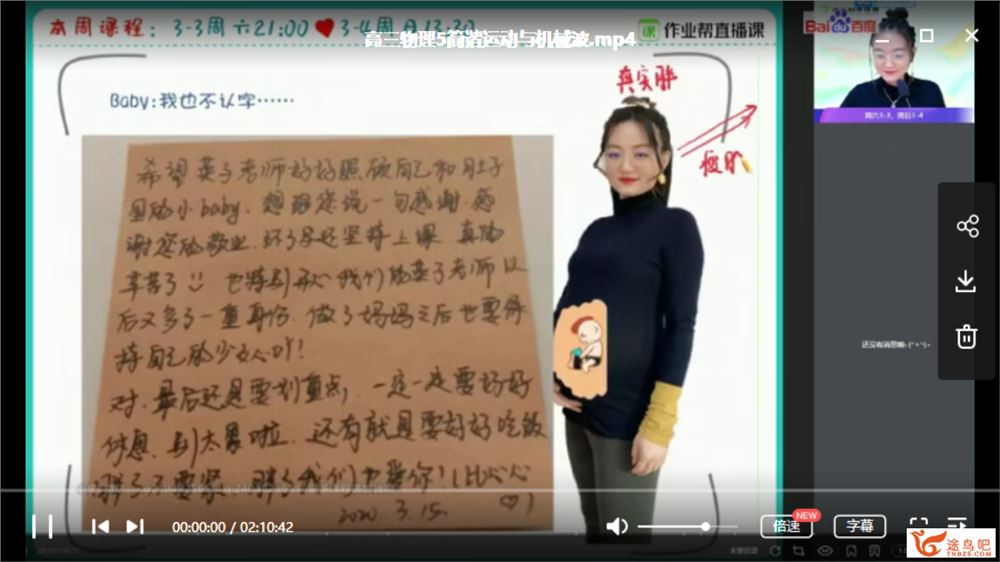 本周课程：3-3周六21:00❤3-4周日13:30
高三物理5简谐运动与机械波.mp4
作业帮直播课
Bai百度
周六3-3，周日3-4
Baby:我也不认字……
真实胖
瘦时
希望英子老师好好照顾自己和肚子
里的小baby.想跟您说一句感谢.感
谢您的敬业.怀了孕还坚持上课.真的
辛苦了 也特别开心我们的英子老师以
后又多了一重身份.做了妈妈之后也要保
持自己的少女心叶！
对.最后还是要划重点，一定一定要好好
休息.别太累啦.还有就是要好好吃饭
胖了不要紧.胖了我们也爱你！(比心心
♡)
2020.3.15.
还没有消息呦~(*^*)~
00:00:00 / 02:10:42
NEW
倍速
字幕
途鸟吧
TNBZS.COM